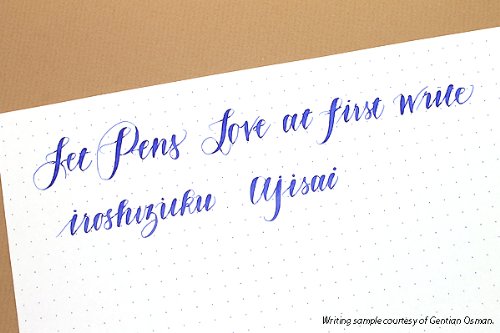 Jet Pens Love at first write
iroshizuku Ajisai
Writing sample courtesy of Gentian Osman.